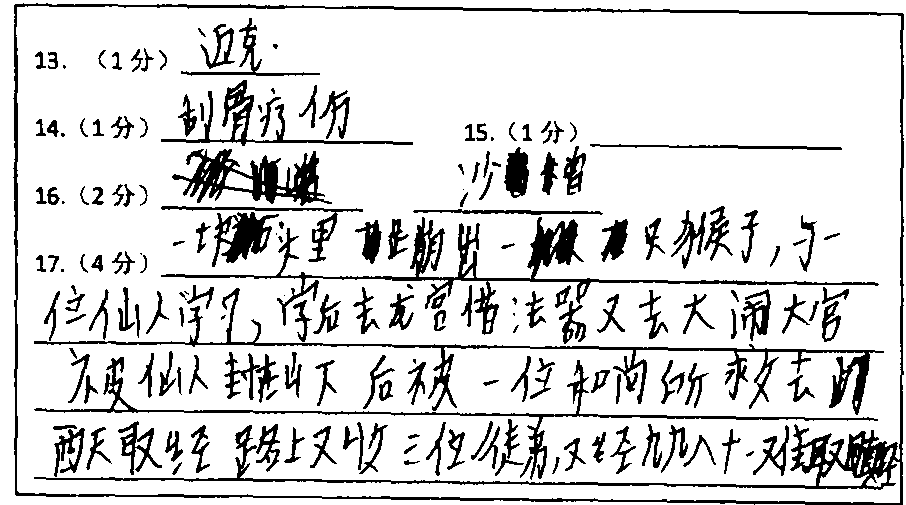 13. （1分） 迈克.
14.（1分） 刮骨疗伤 15.（1分）
16.（2分） 沙僧
17.（4分） 一块石头里蹦出一只猴子,与一
位仙人学习,学后去龙宫借法器又去大闹大宫
被仙人封在山下后被一位和尚所救去
西天取经路上又收三位徒弟,又经九九八十一难取